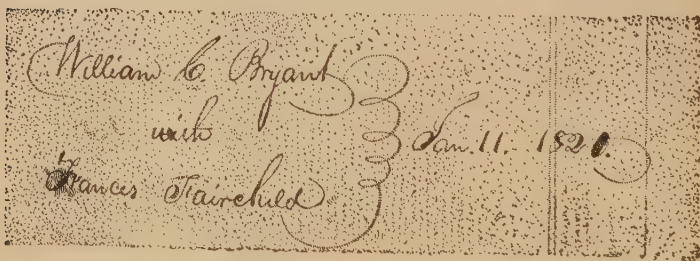 William C. Bryant
with
Frances Fairchild
Jan. 11. 1821.